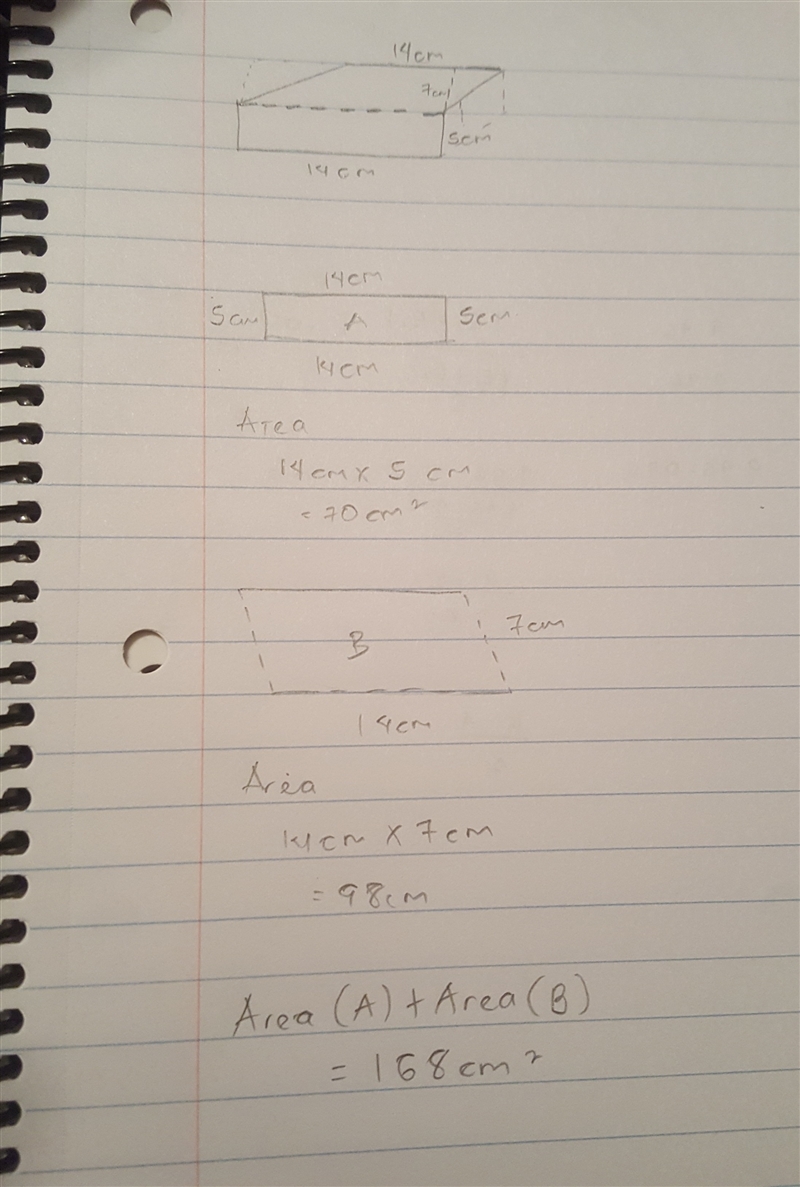 14cm
7cm
5cm
14cm
14cm
5cm A 5cm
14cm
Area
14cm x 5 cm
= 70cm²
B 7cm
14cm
Area
14cm x 7cm
= 98cm
Area (A) + Area (B)
= 168cm²